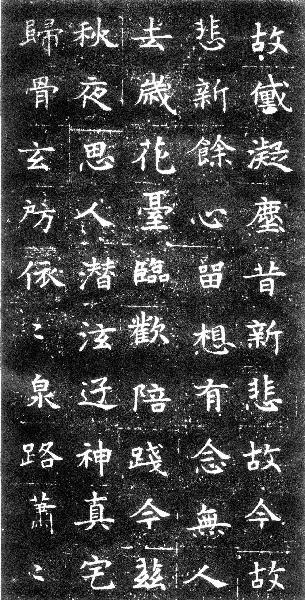 故黛凝塵昔新悲故今故
悲新餘心留想有念無人
去歲花臺臨歡陪踐今兹
秋夜思人潜泫迂神真宅
歸骨玄房依〻泉路蕭〻